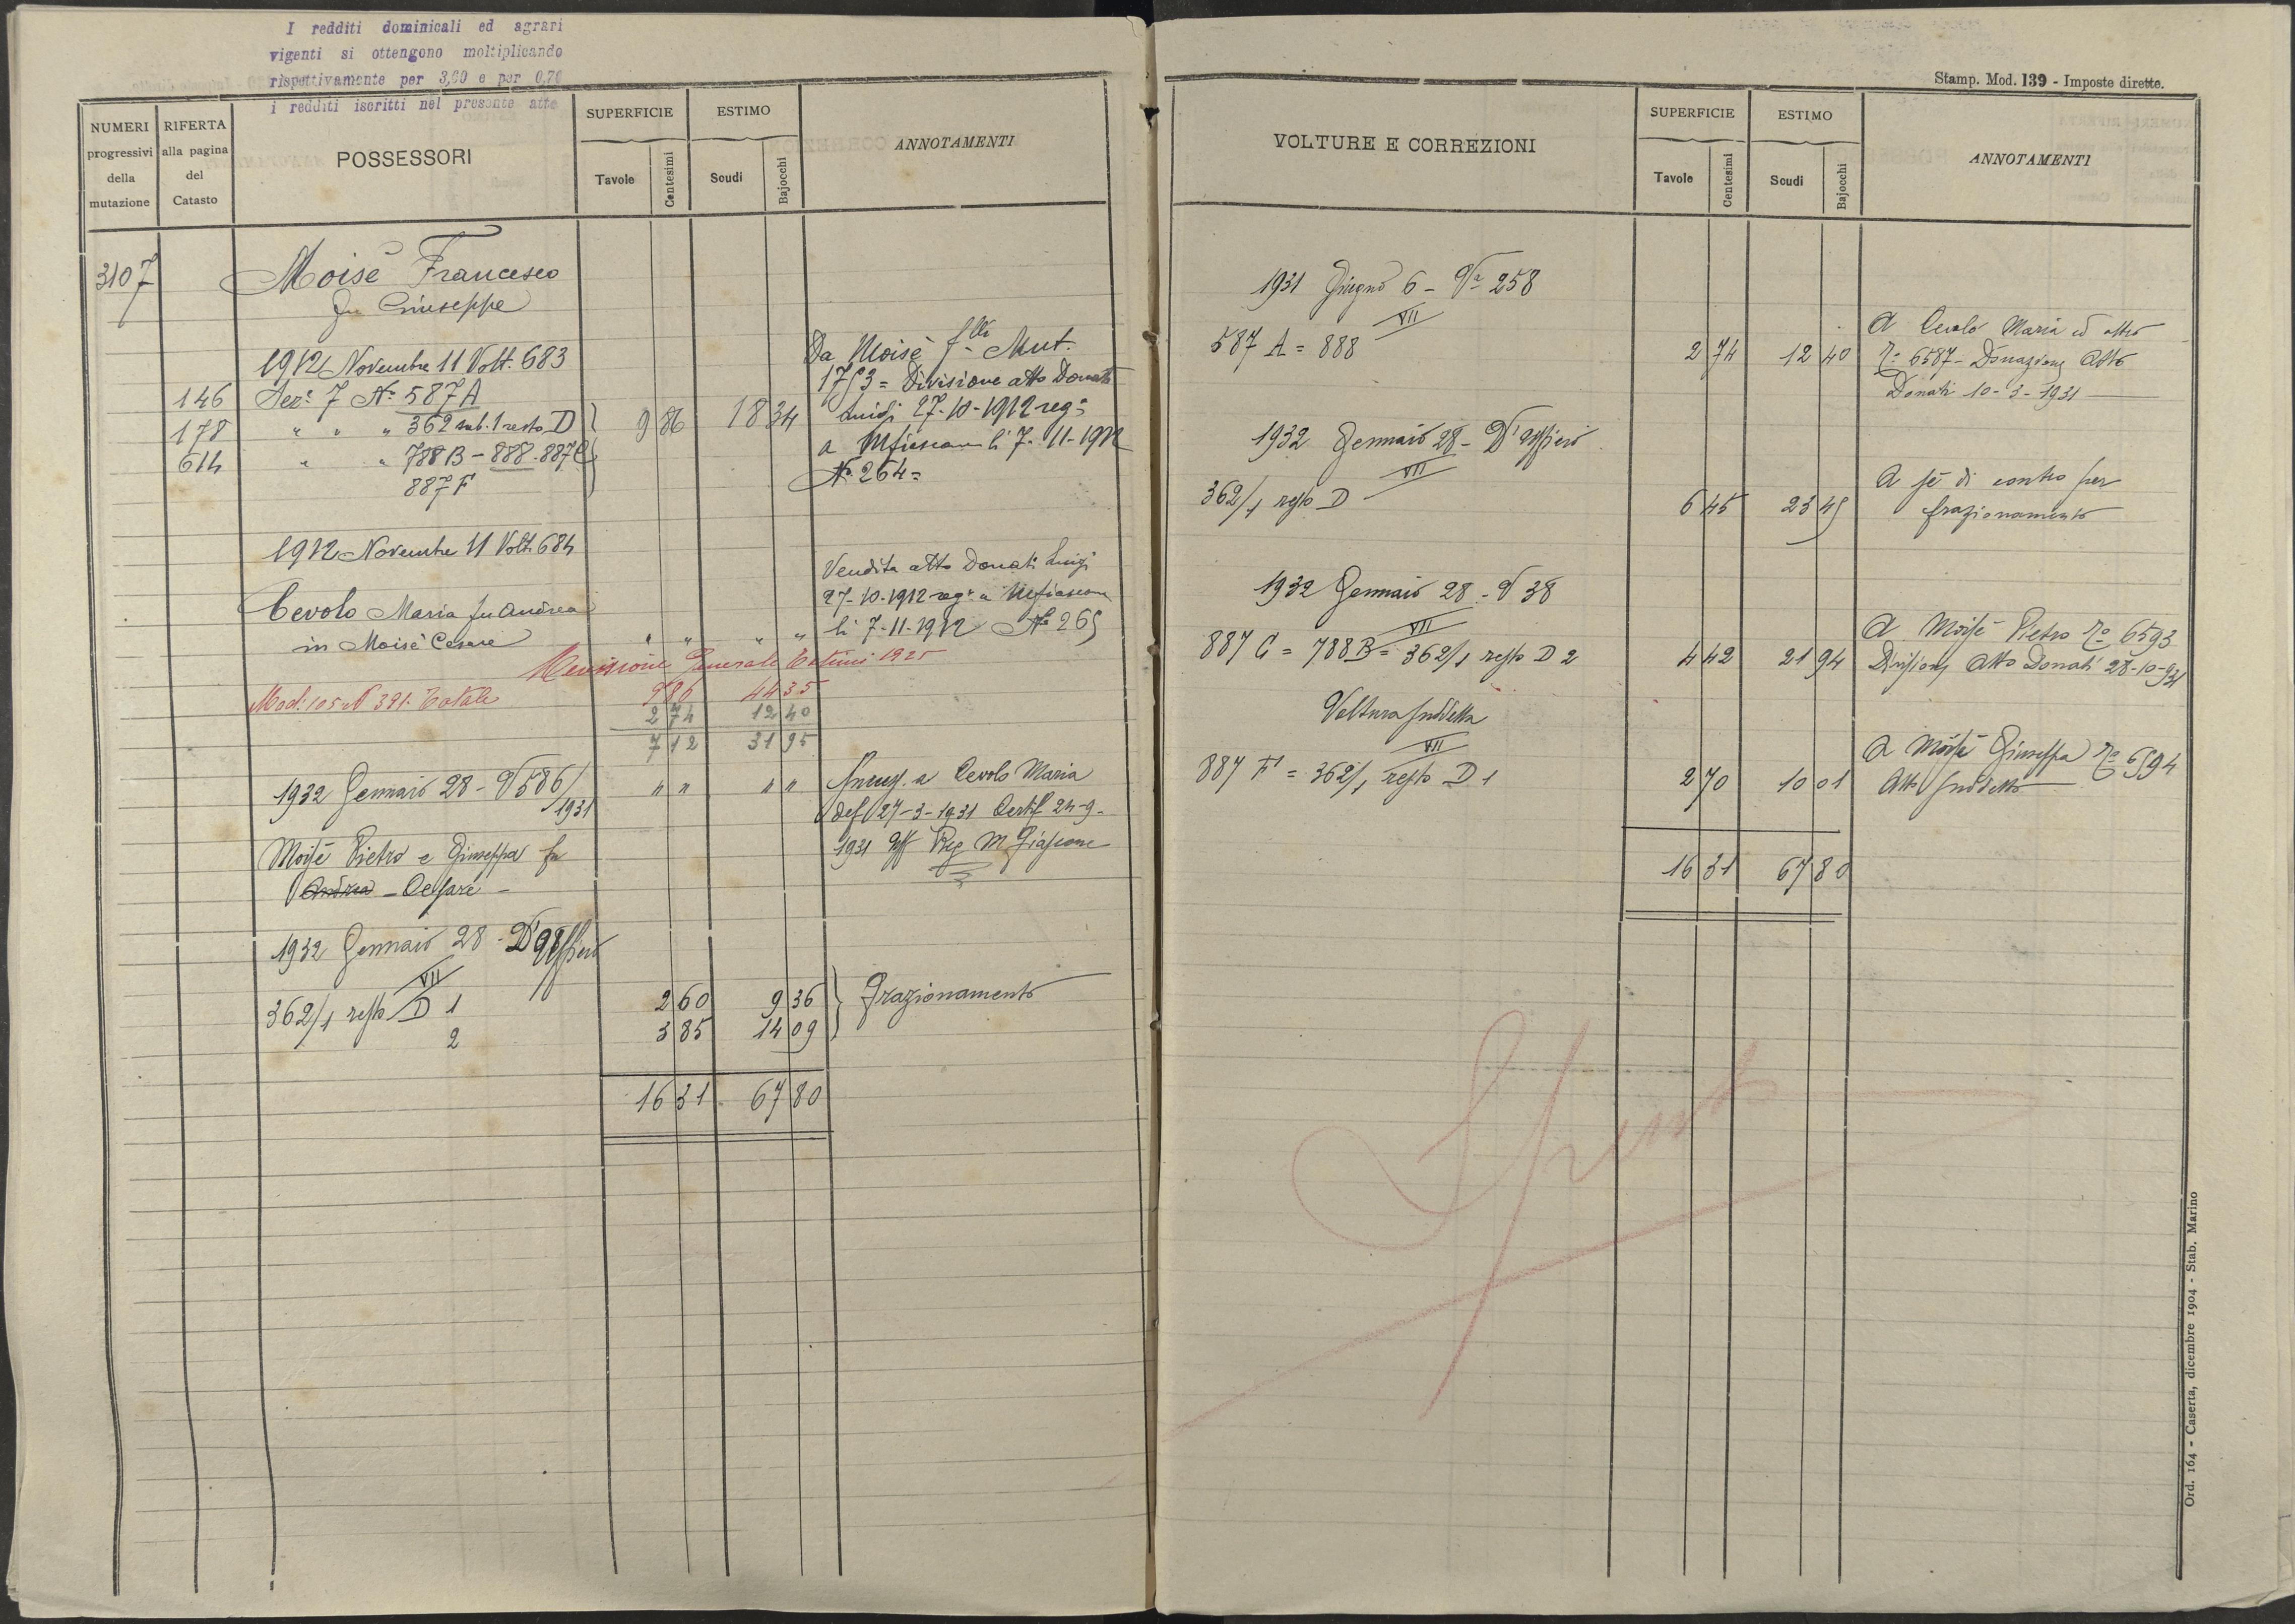 I redditi dominicali ed agrari
vigenti si ottengono moltiplicando
rispettivamente per 3,60 e per 0,70
i redditi iscritti nel presente atto
NUMERI progressivi della mutazione
RIFERTA alla pagina del Catasto
POSSESSORI
SUPERFICIE
Tavole
Centesimi
ESTIMO
Scudi
Bajocchi
ANNOTAMENTI
3107
Moisè Francesco
fu Giuseppe
1912 Novembre 11 Volt. 683
146 Sez.e 7 N.o 587A
178 " " " 362 sub. 1 resto D 9 86 18 34
614 " " 788 B - 888 - 887C
887 F
Da Moisè f.lli Mut.
1753 = Divisione atto Donati
Luigi 27-10-1912 reg.o
a Mfiascone li 7-11-1912
No 264 =
1912 Novembre 11 Volt. 684
Cevolo Maria fu Andrea
in Moisè Cesare " " " "
Vendita atto Donati Luigi
27-10-1912 reg.o a Mfiascone
li 7-11-1912 No 265
Revisione Generale Estimi 1925
Mod: 105 N 391. Totale 9 86 44 35
2 74 12 40
7 12 31 95
1932 Gennaio 28 - V 586/1931 " " " "
a Cevolo Maria
27-3-1931 Certif 24-9-
1931 Uff Reg M Fiascone
Moisè Pietro e Giuseppa fu
Andrea - Cesare -
1932 Gennaio 28 - D'Ufficio
VII
362/1 resto D 1 2 60 9 36 Frazionamento
2 3 85 14 09
16 31 67 80
Stamp. Mod. 139 - Imposte dirette.
VOLTURE E CORREZIONI
SUPERFICIE
Tavole
Centesimi
ESTIMO
Scudi
Bajocchi
ANNOTAMENTI
1931 Giugno 6 - Va 258
VII
587 A = 888 2 74 12 40
A Cevolo Maria ed altro
Ro 6587 - Donazione Atto
Donati 10-3-1931
1932 Gennaio 28 - D'Ufficio
VII
362/1 resto D 6 45 23 45
A sè di contro per
frazionamento
1932 Gennaio 28 - V 38
VII
887 C = 788 B = 362/1 resto D 2 4 42 21 94
A Moisè Pietro Ro 6593
Divisione Atto Donati 28-10-931
Voltura suddetta
VII
887 F = 362/1 resto D 1 2 70 10 01
A Moisè Giuseppa Ro 6594
Atto suddetto
16 31 67 80
Spento
Ord. 164 - Caserta, dicembre 1904 - Stab. Marino